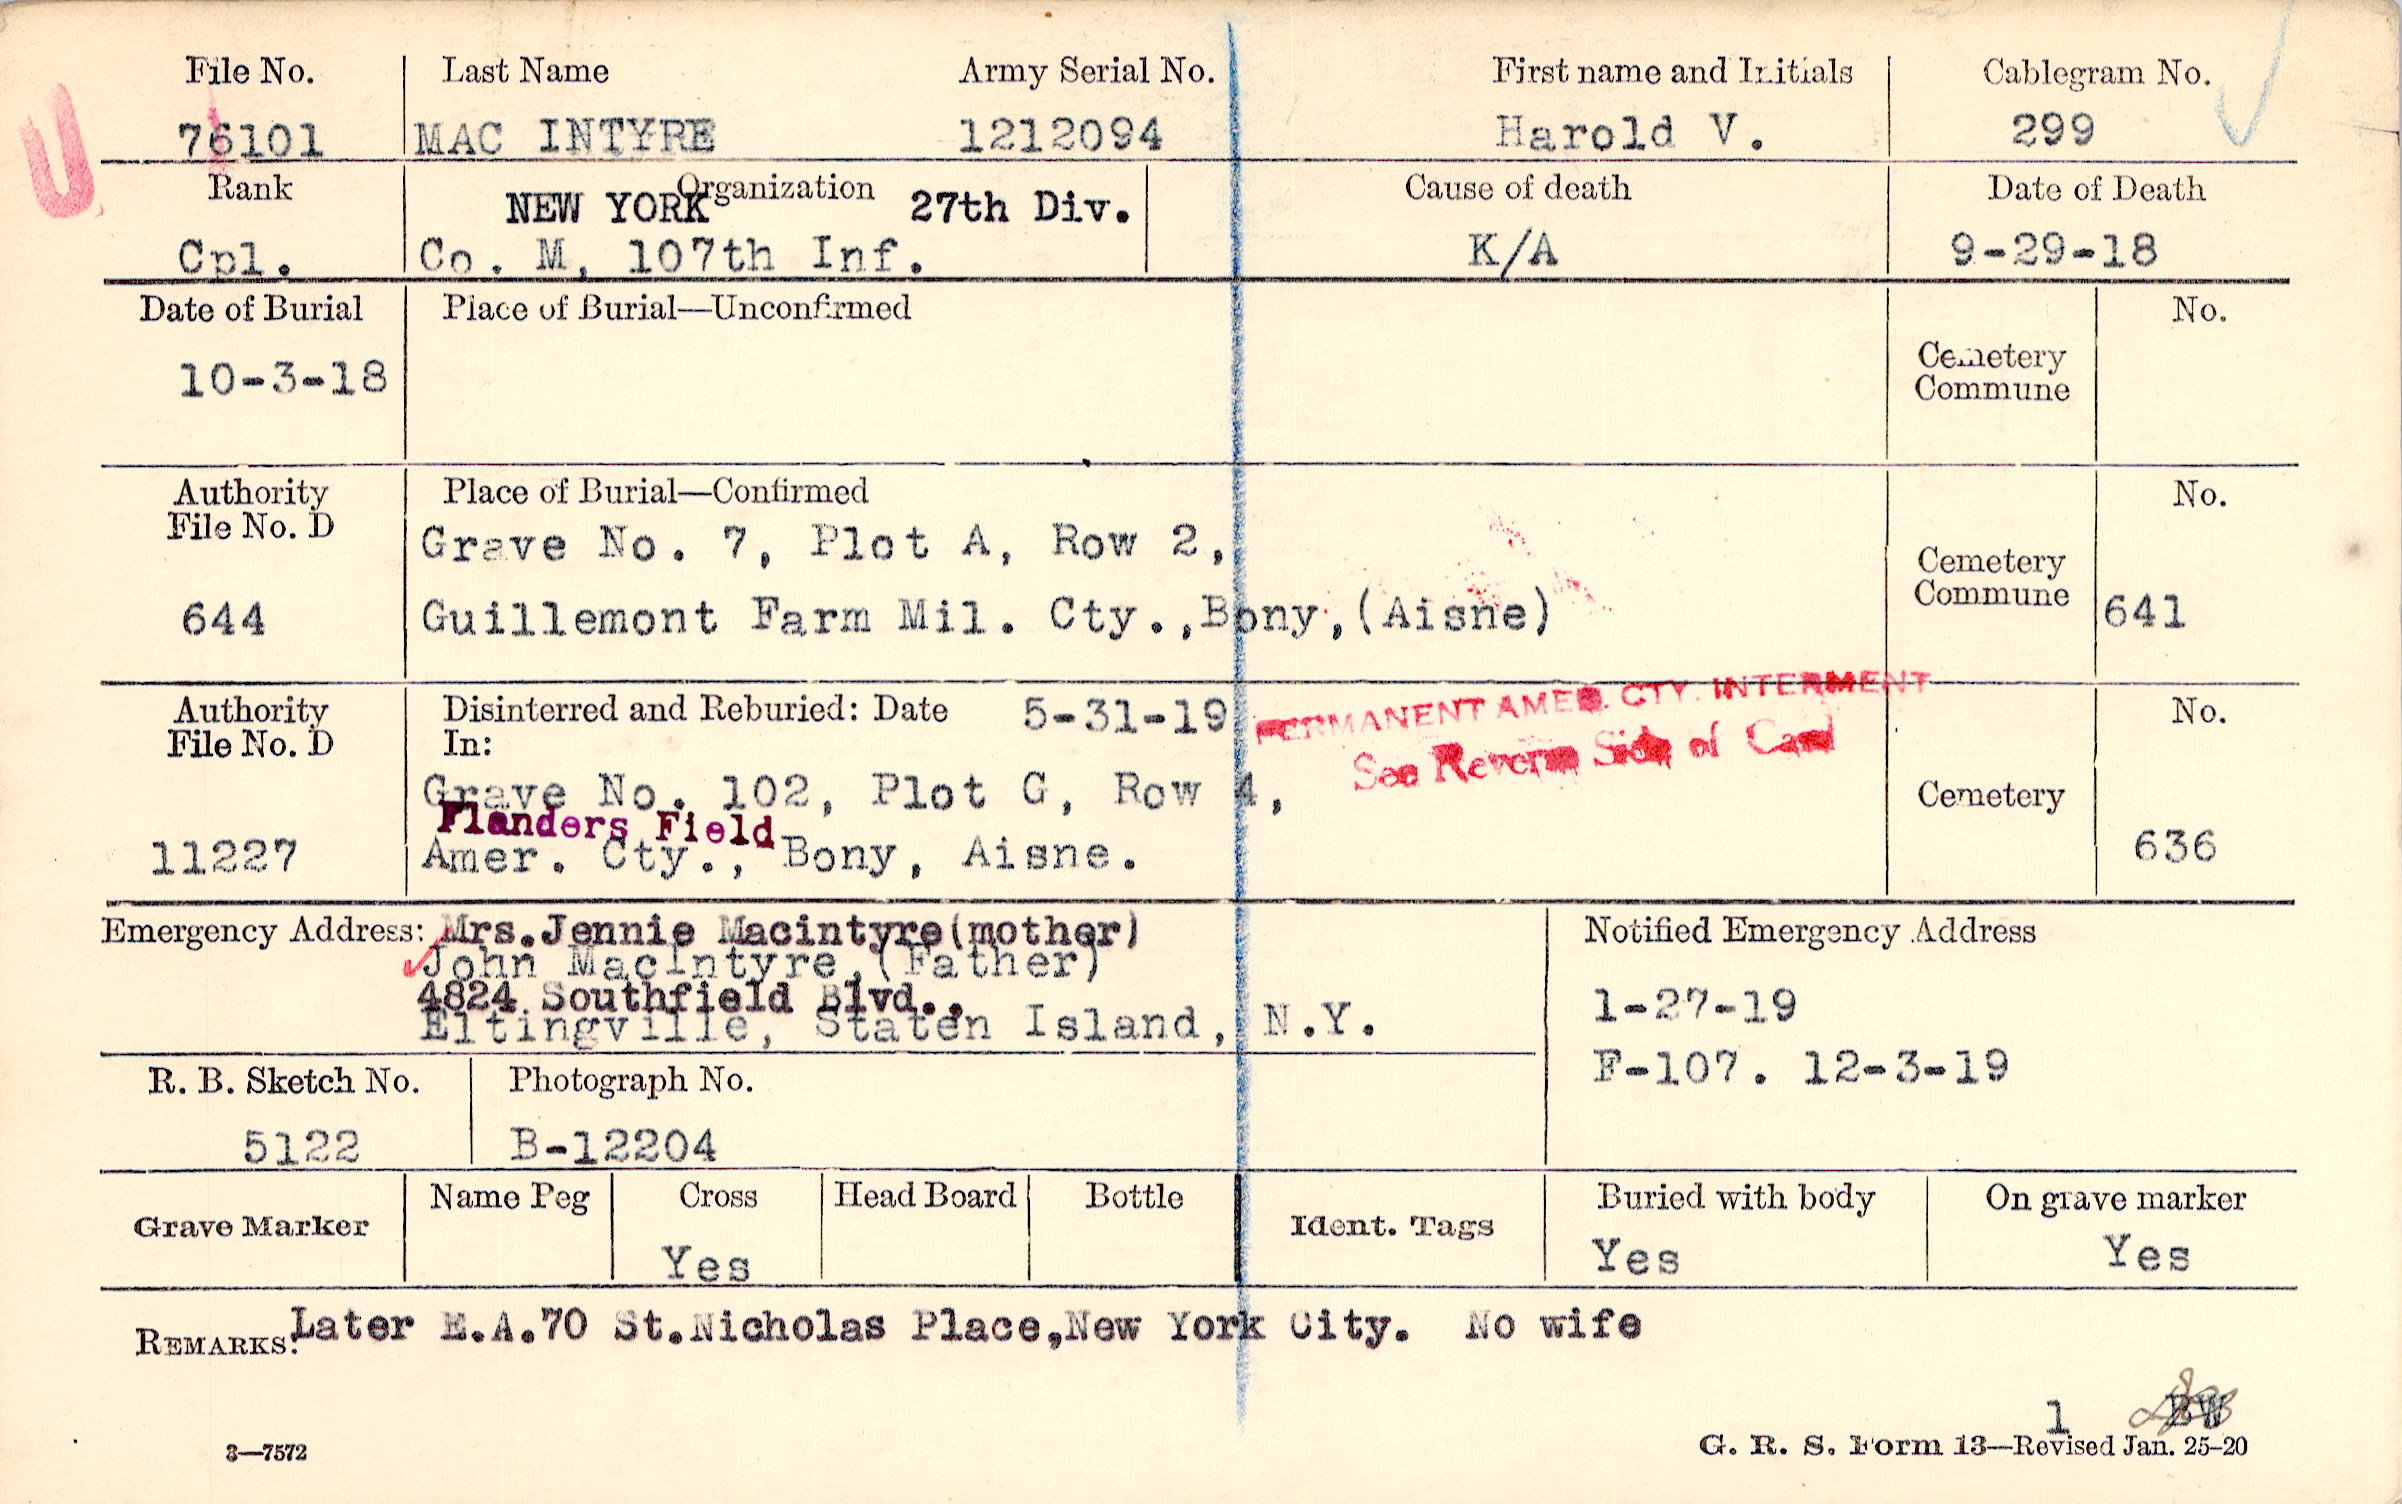 U
File No. Last Name Army Serial No. First name and Initials Cablegram No.
76101 MAC INTYRE 1212094 Harold V. 299
Rank Organization Cause of death Date of Death
NEW YORK 27th Div.
Cpl. Co. M, 107th Inf. K/A 9-29-18
Date of Burial Place of Burial—Unconfirmed No.
10-3-18
Cemetery
Commune
Authority Place of Burial—Confirmed No.
File No. D
Grave No. 7, Plot A, Row 2,
Cemetery
Commune
644 Guillemont Farm Mil. Cty., Bony, (Aisne) 641
Authority Disinterred and Reburied: Date 5-31-19 No.
File No. D In:
PERMANENT AMER. CTY. INTERMENT
See Reverse Side of Card
Grave No. 102, Plot G, Row 4, Cemetery
Flanders Field
11227 Amer. Cty., Bony, Aisne. 636
Emergency Address: Mrs. Jennie Macintyre (mother) Notified Emergency Address
John MacIntyre, (Father)
4824 Southfield Blvd., 1-27-19
Eltingville, Staten Island, N.Y.
F-107. 12-3-19
R. B. Sketch No. Photograph No.
5122 B-12204
Grave Marker Name Peg Cross Head Board Bottle Ident. Tags Buried with body On grave marker
Yes Yes Yes
REMARKS: Later E.A. 70 St. Nicholas Place, New York City. No wife
1 BW
3—7572 G. R. S. Form 13—Revised Jan. 25-20